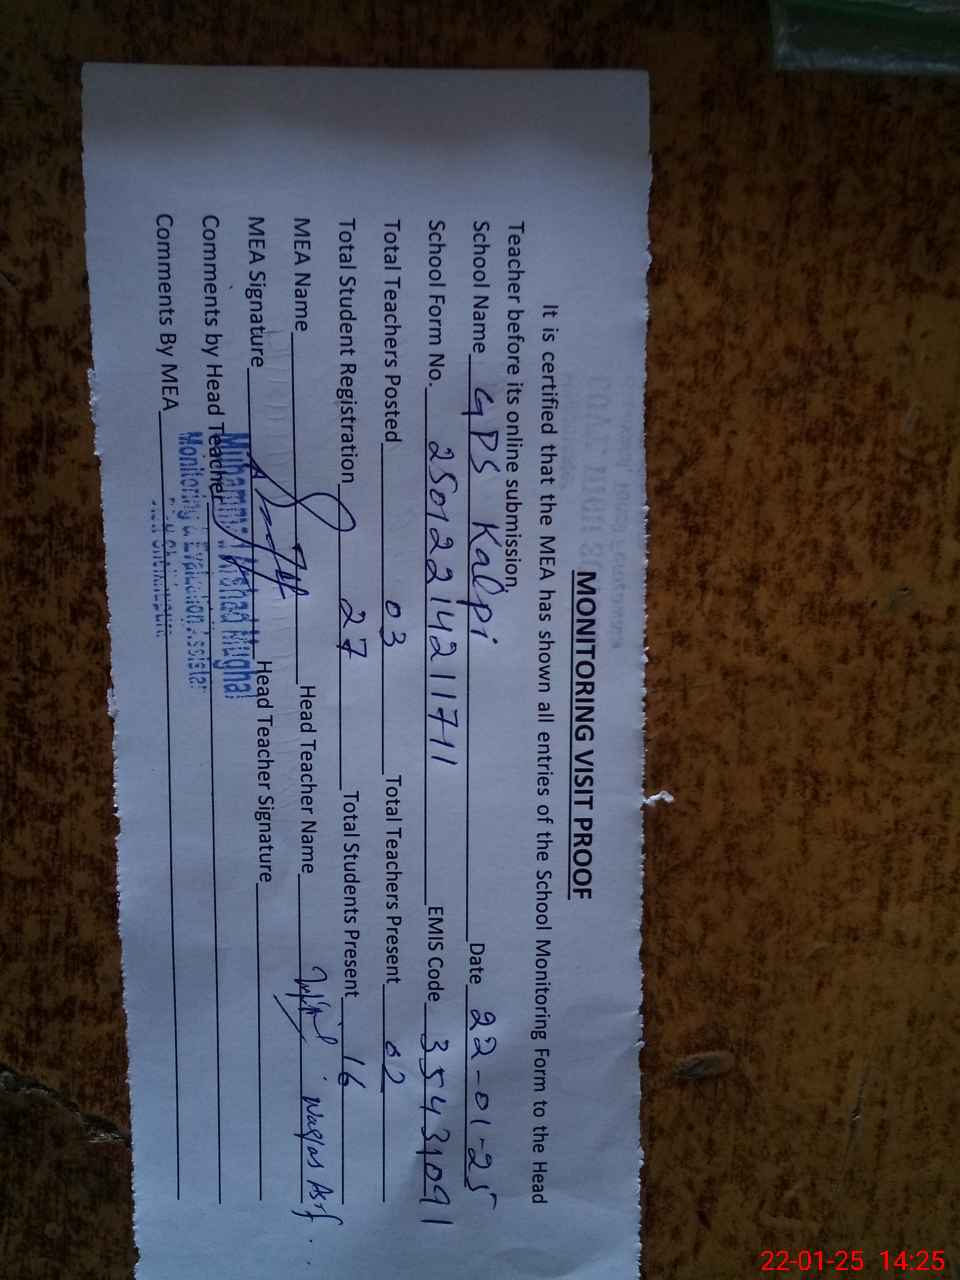 MONITORING VISIT PROOF
It is certified that the MEA has shown all entries of the School Monitoring Form to the Head
Teacher before its online submission
School Name GPS Kalpi Date 22-01-25
School Form No. 2501221421171 1 EMIS Code 35431091
Total Teachers Posted 03 Total Teachers Present 02
Total Student Registration 27 Total Students Present 16
MEA Name Head Teacher Name Waqas Asif
MEA Signature Head Teacher Signature
Comments by Head Teacher
Muhammad Arshad Mughal
Monitoring & Evaluation Assistant
Comments By MEA
22-01-25 14:25